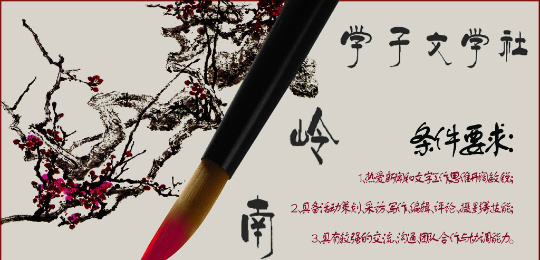 学子文学社
岭
南
条件要求:
1.热爱新闻和文字工作,思维开阔敏锐;
2.具备活动策划,采访,写作,编辑,评论,摄影等技能;
3.具有较强的交流,沟通,团队合作与协调能力。